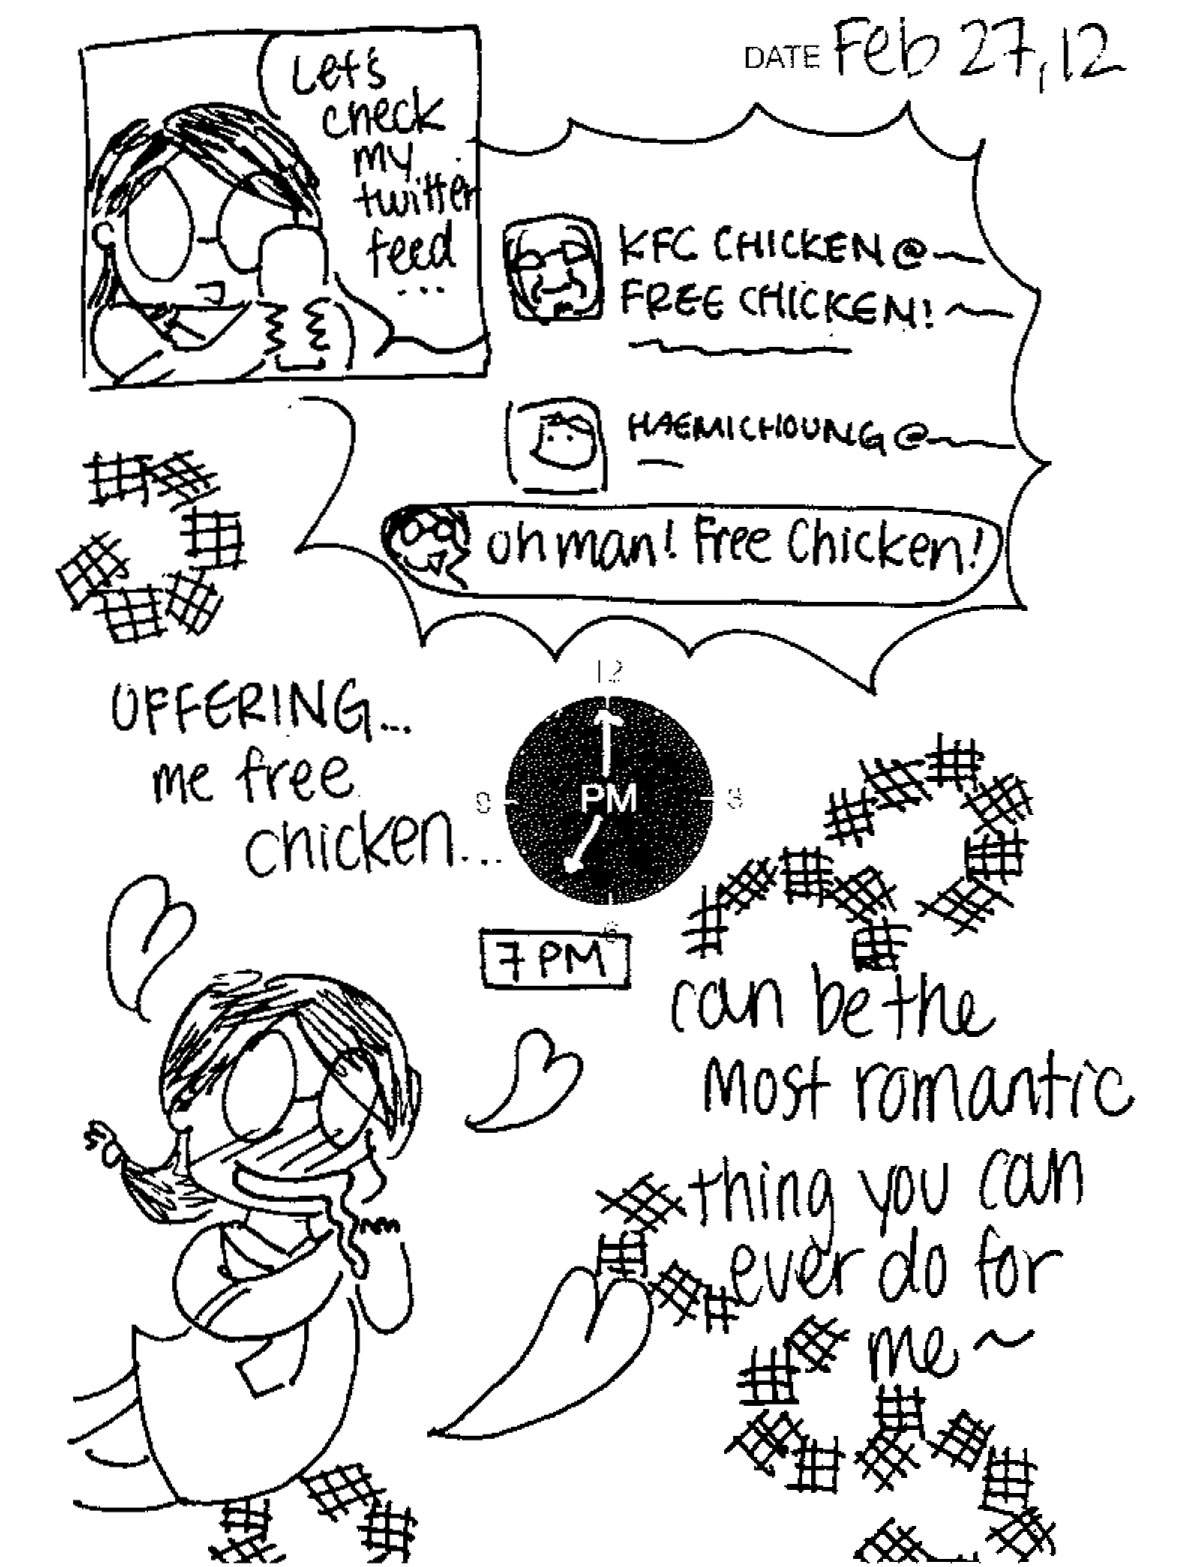 DATE Feb 27, 12
Let's
check
my
twitter
feed
...
KFC CHICKEN @~
FREE CHICKEN! ~
HAEMICHOUNG @~
oh man! Free Chicken!
OFFERING...
me free
chicken...
12
9
PM
3
6
7 PM
can be the
most romantic
thing you can
ever do for
me ~